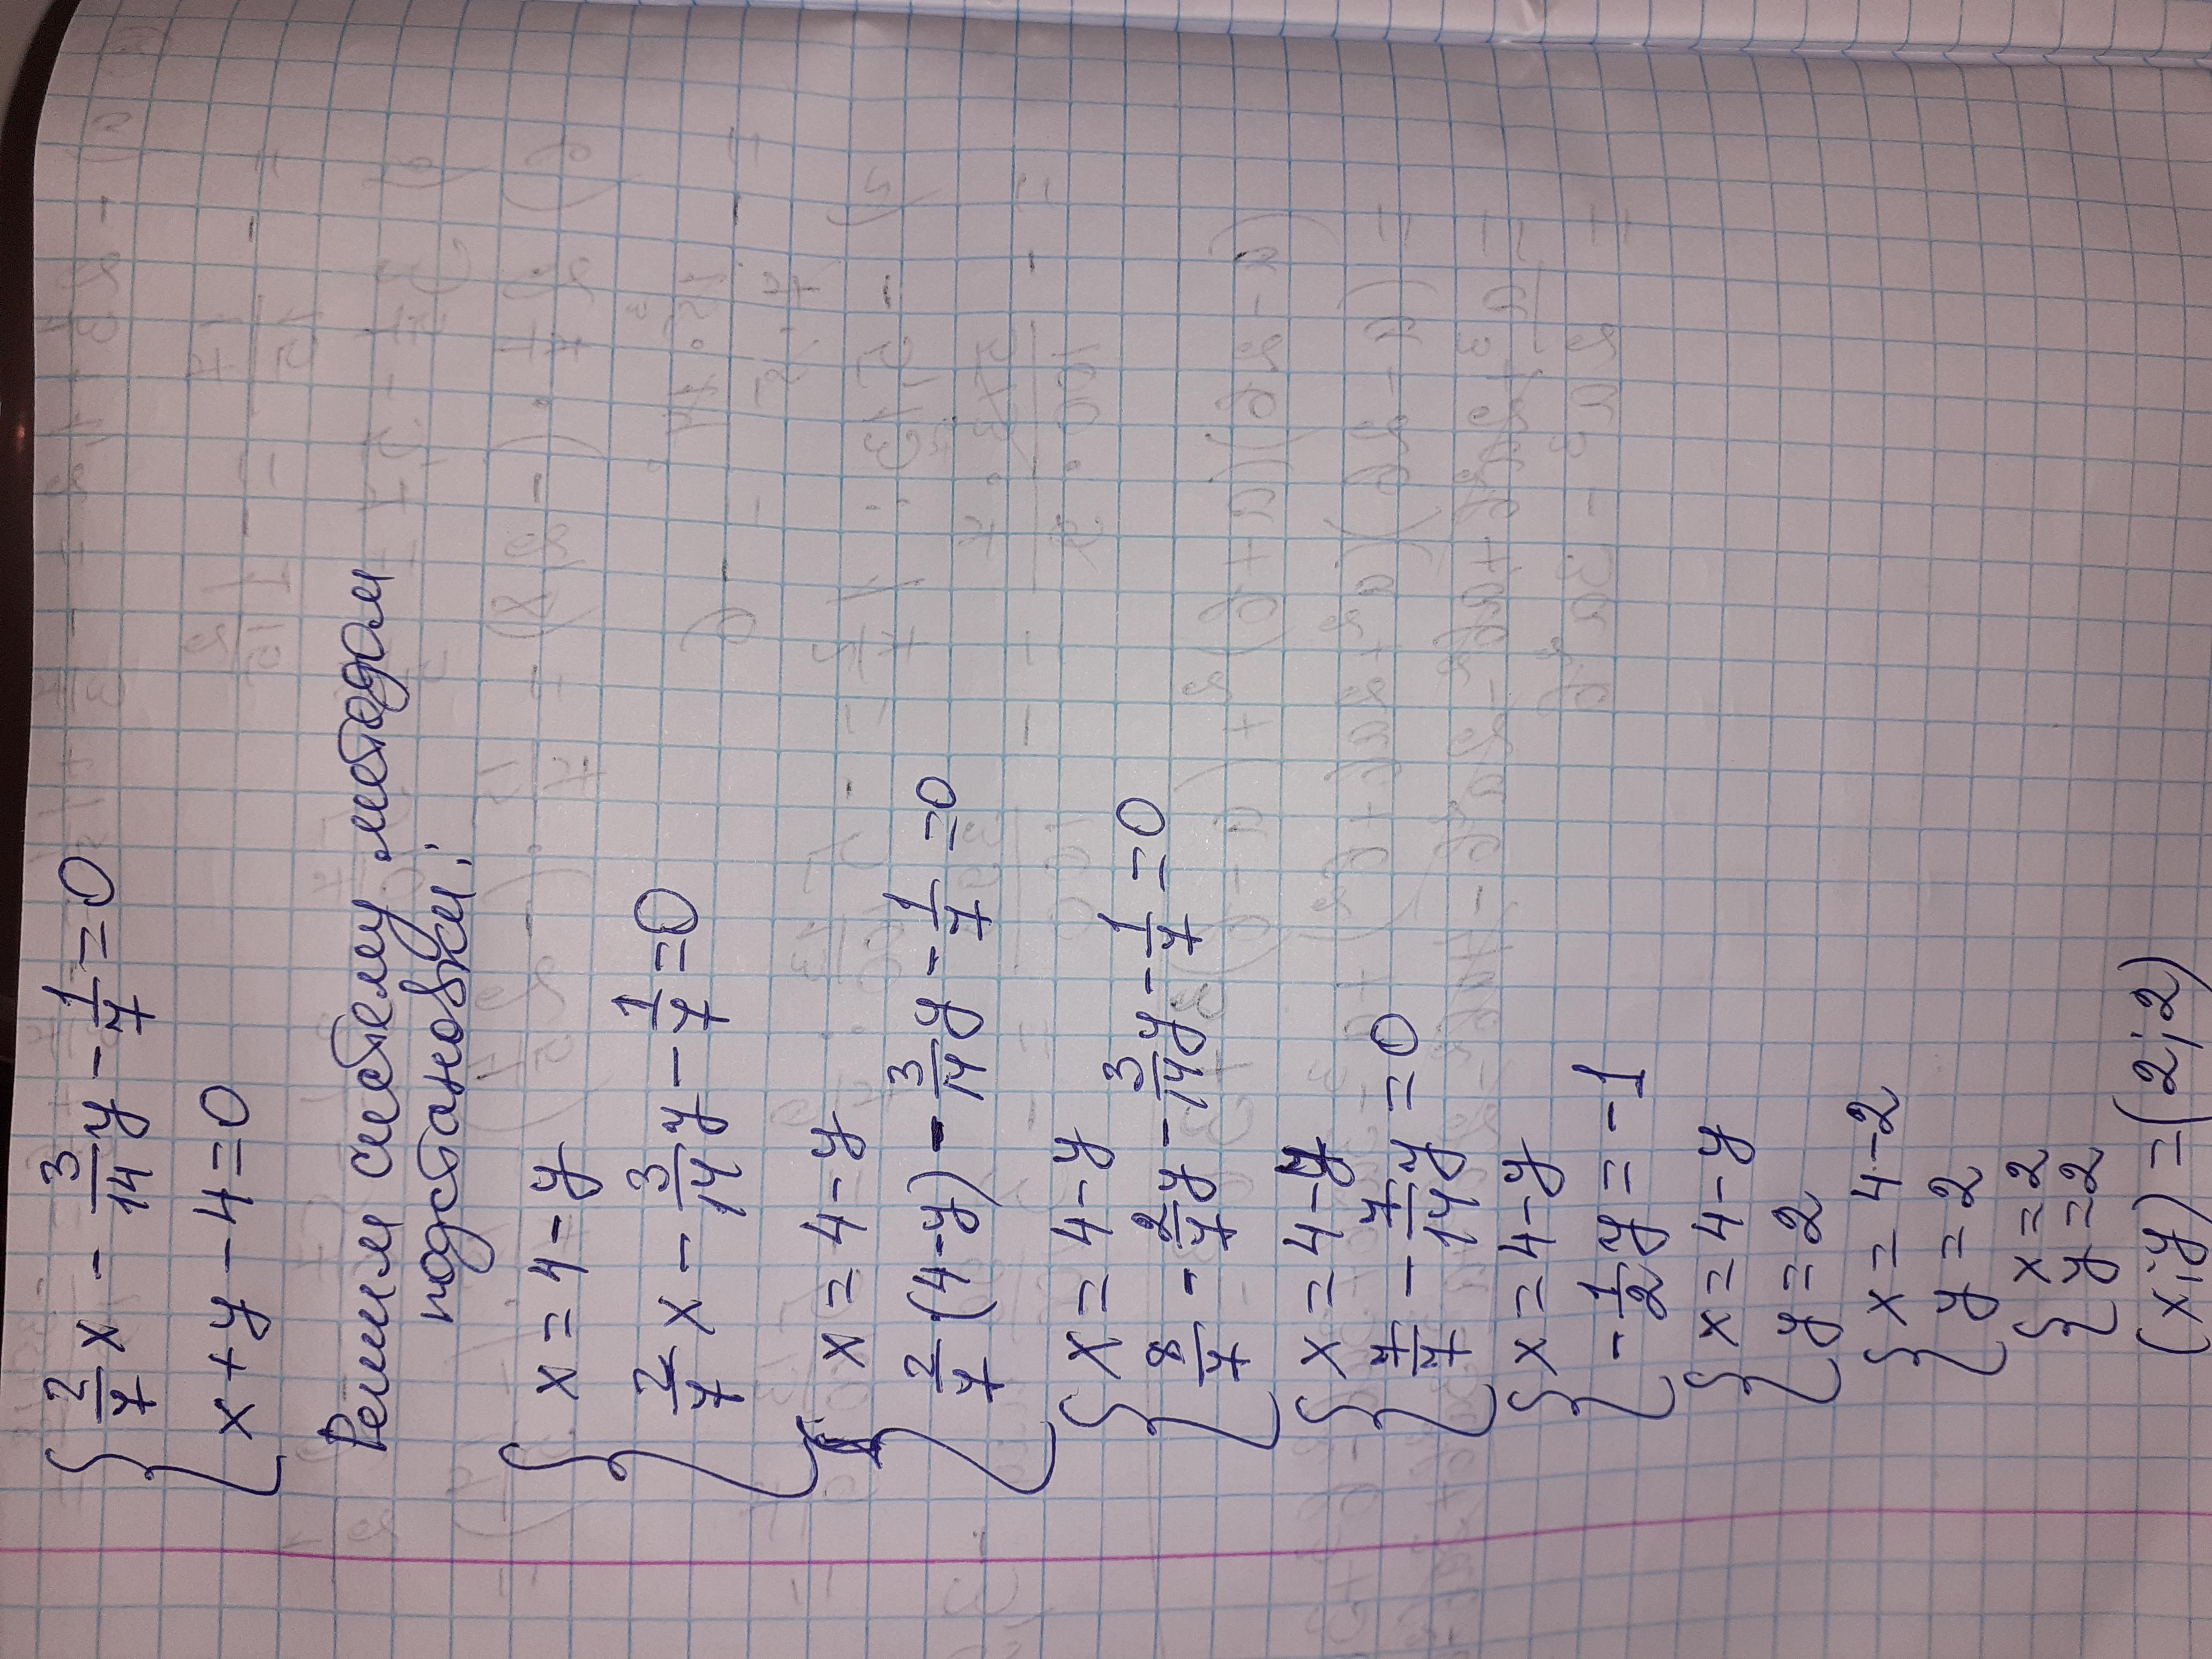 { 2/7 x - 3/14 y - 1/7 = 0
x + y - 4 = 0
Решим систему методом
подстановки:
{ x = 4 - y
2/7 x - 3/14 y - 1/7 = 0
{ x = 4 - y
2/7 (4-y) - 3/14 y - 1/7 = 0
{ x = 4 - y
8/7 - 2/7 y - 3/14 y - 1/7 = 0
{ x = 4 - y
7/7 - 7/14 y = 0
{ x = 4 - y
- 1/2 y = -1
{ x = 4 - y
y = 2
{ x = 4 - 2
y = 2
{ x = 2
y = 2
(x;y) = (2;2)